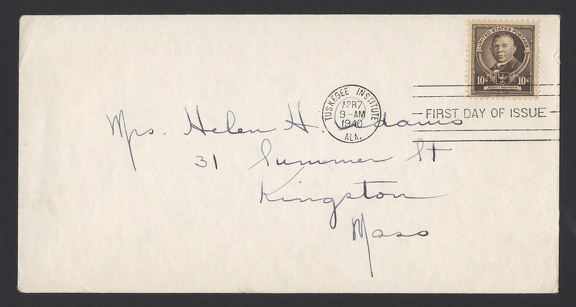 UNITED STATES POSTAGE
10¢ 10¢
TUSKEGEE INSTITUTE
APR 7
9-AM
1940
ALA.
FIRST DAY OF ISSUE
Mrs. Helen H. Adams
31 Summer St
Kingston
Mass